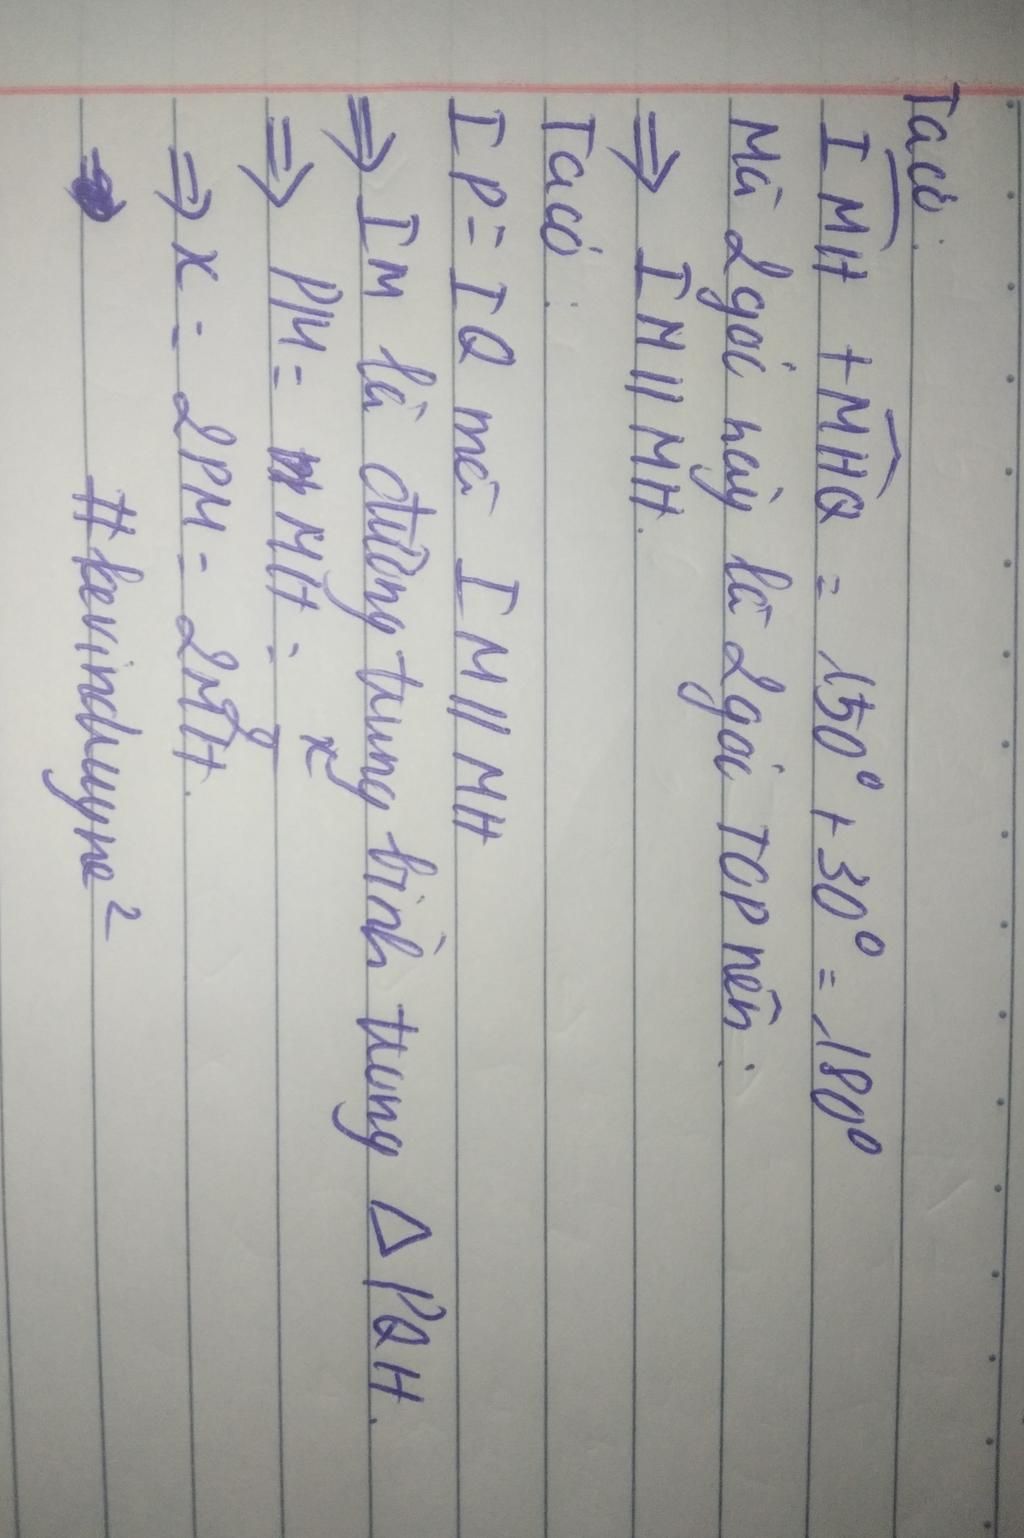 Ta có:
IMH + MHQ = 150° + 30° = 180°
Mà 2 góc này là 2 góc TCP nên:
⇒ IM // MH.
Ta có:
IP = IQ mà IM // MH
⇒ IM là đường trung bình trong Δ PQH.
⇒ PM = MH = x/2
⇒ x = 2PM = 2MH.
#kevinduyne²